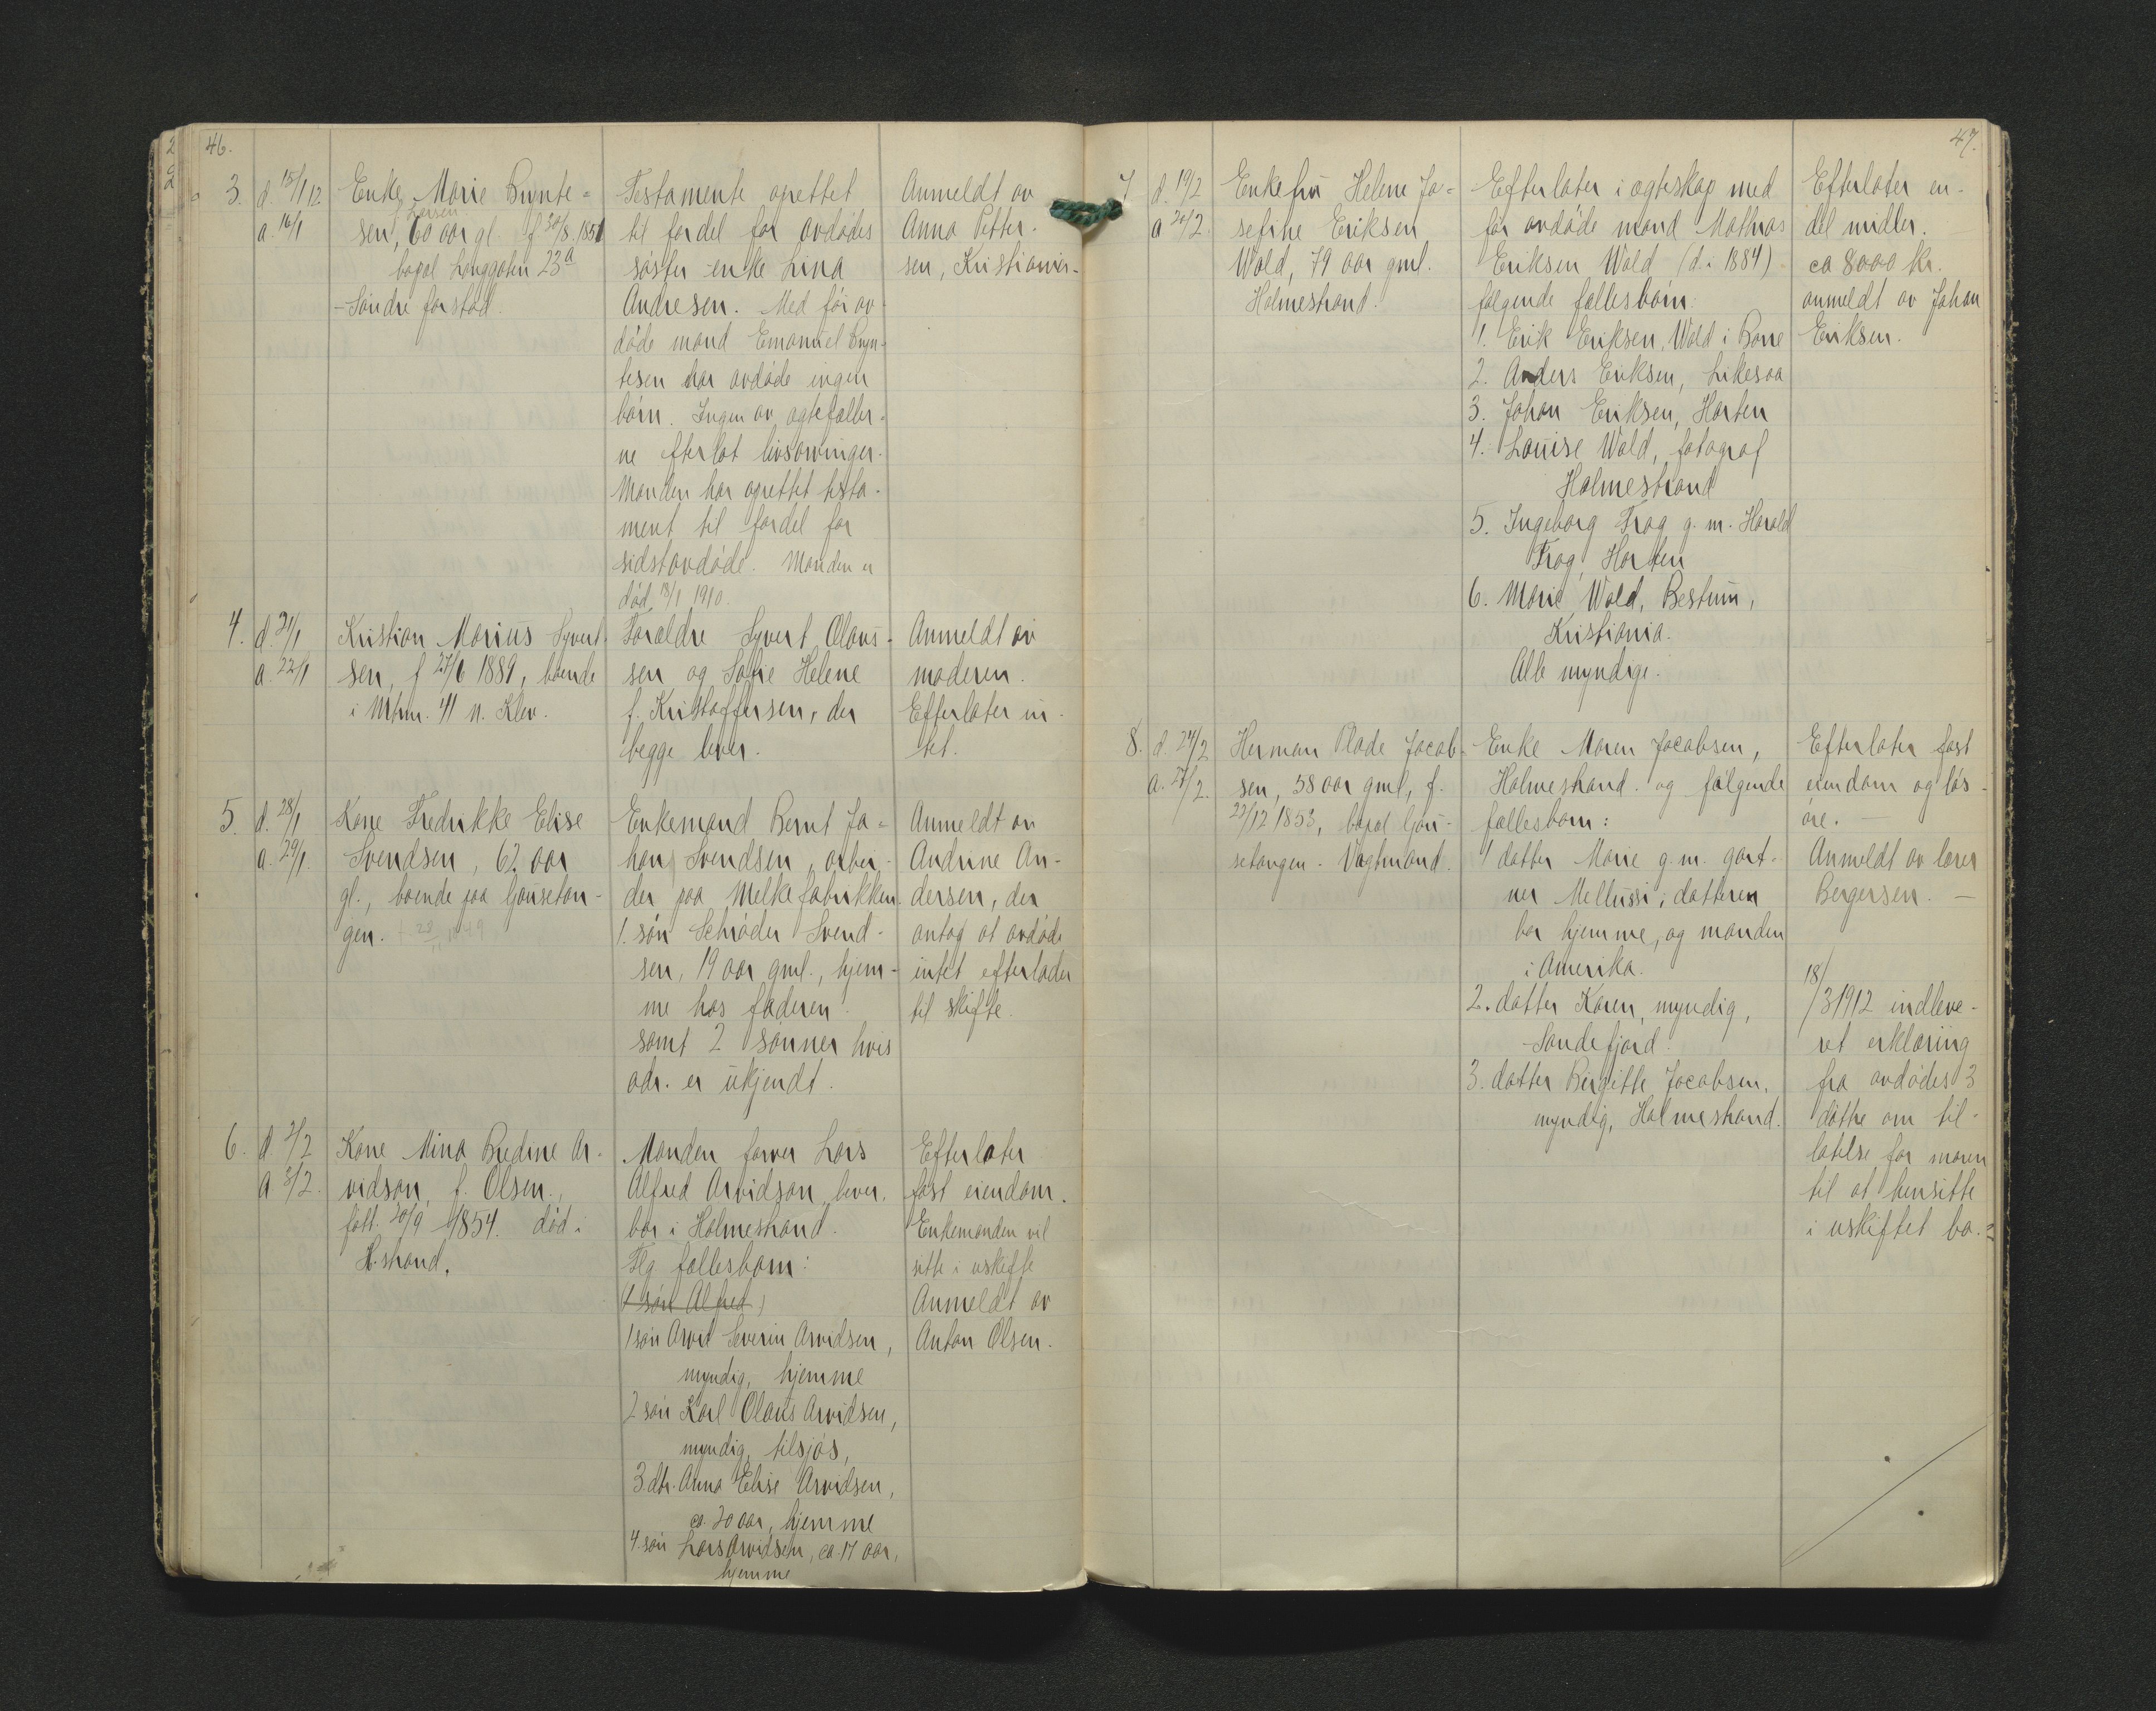 46.
3.
d. 15/1 12.
a. 16/1
Enke Marie Bynte-
f. Larsen
sen, 60 aar gl. f 30/8 1851
bopæl Langgaten 23a
Søndre forstad.
Testamente oprettet
til fordel for avdødes
søster enke Lina
Andresen. Med før av-
døde mand Emanuel Byn-
tesen har avdøde ingen
børn. Ingen av ægtefæller-
ne efterlot livsarvinger.
Manden har oprettet testa-
ment til fordel for
sidstavdøde. Manden er
død 18/1 1910.
Anmeldt av
Anna Petter-
sen, Kristiania.
4.
d. 21/1
a. 22/1
Kristian Marius Syvert-
sen, f 27/6 1889, boende
i Mtrn. 41 n. Klev.
Forældre Syvert Olaus-
sen og Sofie Helene
f. Kristoffersen, der
begge lever.
Anmeldt av
moderen.
Efterlater in-
tet.
5.
d. 28/1
a. 29/1.
Kone Fredrikke Elise
Svendsen, 62 aar
gl., boende paa Gausetan-
gen.
Enkemand Bernt Jo-
han Svendsen, arbei-
der paa Melkefabrikken.
1. søn Schrøder Svend-
sen, 19 aar gml., hjem-
me hos faderen
samt 2 sønner hvis
adr. er ukjendt.
Anmeldt av
Andrine An-
dersen, der
antog at avdøde
intet efterlader
til skifte.
6.
d 2/2
a 3/2.
Kone Mina Bredine Ar-
vidson, f. Olsen.,
født 20/9 1854. død i
H.strand.
Manden farver Lars
Alfred Arvidson lever,
bor i Holmestrand.
Flg fællesbarn:
1 søn Alfred)
1 søn Arvid Severin Arvidsen,
myndig, hjemme
2 søn Karl Olaus Arvidsen,
myndig, tilsjøs,
3 dtr. Anna Elise Arvidsen,
ca. 20 aar, hjemme
4. søn Lars Arvidsen, ca. 17 aar,
hjemme
Efterlater
fast eiendom.
Enkemanden vil
sitte i uskifte
Anmeldt av
Anton Olsen.
47.
7
d. 19/2
a 20/2.
Enkefru Helene Jo-
sefine Eriksen
Wold, 79 aar gml.
Holmestrand.
Efterlater i ægteskap med
før avdøde mand Mathias
Eriksen Wold (d. i 1884)
følgende fællesbørn:
1. Erik Eriksen, Wold i Borre
2. Anders Eriksen, Likesaa
3. Johan Eriksen, Horten
4. Louise Wold, fotograf
Holmestrand
5. Ingeborg Frog g. m. Harald
Frog, Horten
6. Marie Wold, Bestum,
Kristiania.
Alle myndige.
Efterlater en-
del midler.
ca 8000 kr.
anmeldt av Johan
Eriksen.
8.
d. 24/2
a. 27/2.
Herman Plade Jacob-
sen, 58 aar gml, f.
22/12 1853, bopæl Gau-
setangen. Vagtmand.
Enke Maren Jacobsen,
Holmestrand. og følgende
fællesbarn:
1 datter Marie g. m. gart-
ner Mellussi; datteren
bor hjemme, og manden
i Amerika.
2. datter Karen, myndig,
Sandefjord.
3. datter Birgitte Jacobsen,
myndig, Holmestrand.
Efterlater fast
eiendom og løs-
øre.
Anmeldt av lærer
Bergersen.
18/
/3 1912 indleve-
ret erklæring
fra avdødes 3
døtre om til-
latelse for moren
til at hensitte
i uskiftet bo.